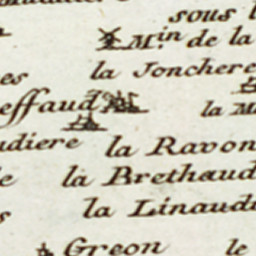 sous
M.in de la
es la Jonchere
effaud la
udiere la Ravon
e la Brethaud
s la Linaudi
Greon le